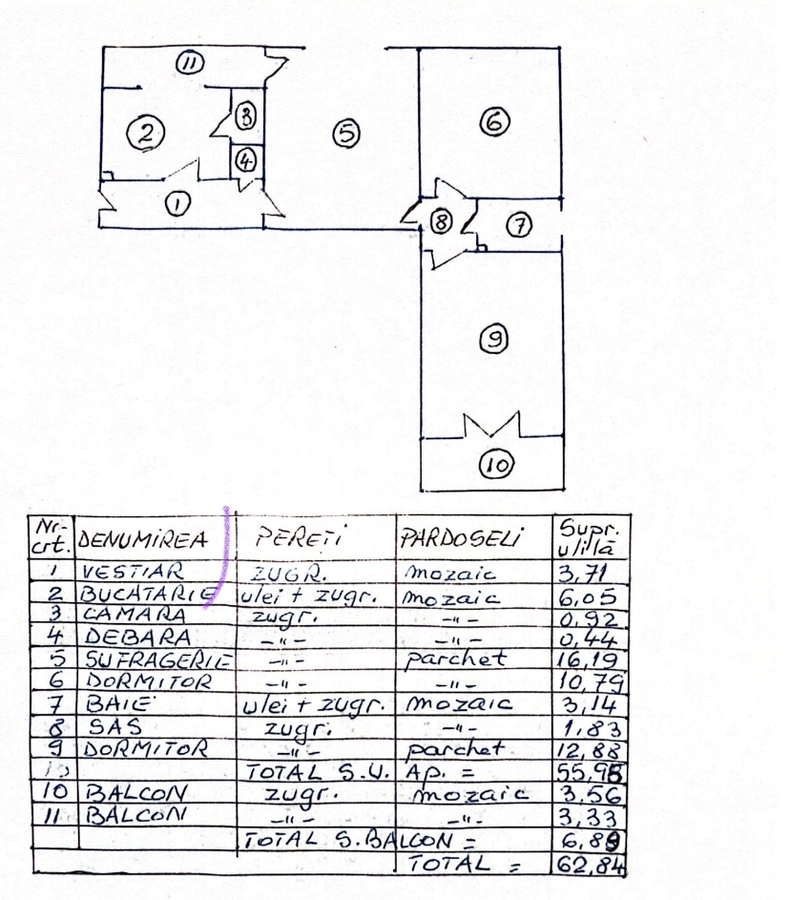 11
3
2
5
6
4
1
8
7
9
10
Nr. crt. DENUMIREA PEREȚI PARDOSELI Supr. utilă
1 VESTIAR ZUGR. mozaic 3,71
2 BUCATARIE ulei + zugr. mozaic 6,05
3 CAMARA zugr. -"- 0,92
4 DEBARA -"- -"- 0,44
5 SUFRAGERIE -"- parchet 16,19
6 DORMITOR -"- -"- 10,79
7 BAIE ulei + zugr. mozaic 3,14
8 SAS zugr. -"- 1,83
9 DORMITOR -"- parchet 12,88
TOTAL S.U. AP. = 55,95
10 BALCON zugr. mozaic 3,56
11 BALCON -"- -"- 3,33
TOTAL S.BALCON = 6,89
TOTAL = 62,84